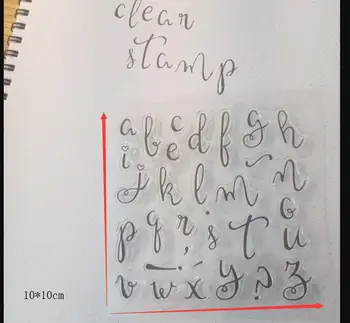 clear
stamp
a b c d f g h
i e
j k l m n
o
p q r, s t u
v w x y ? z
10*10cm